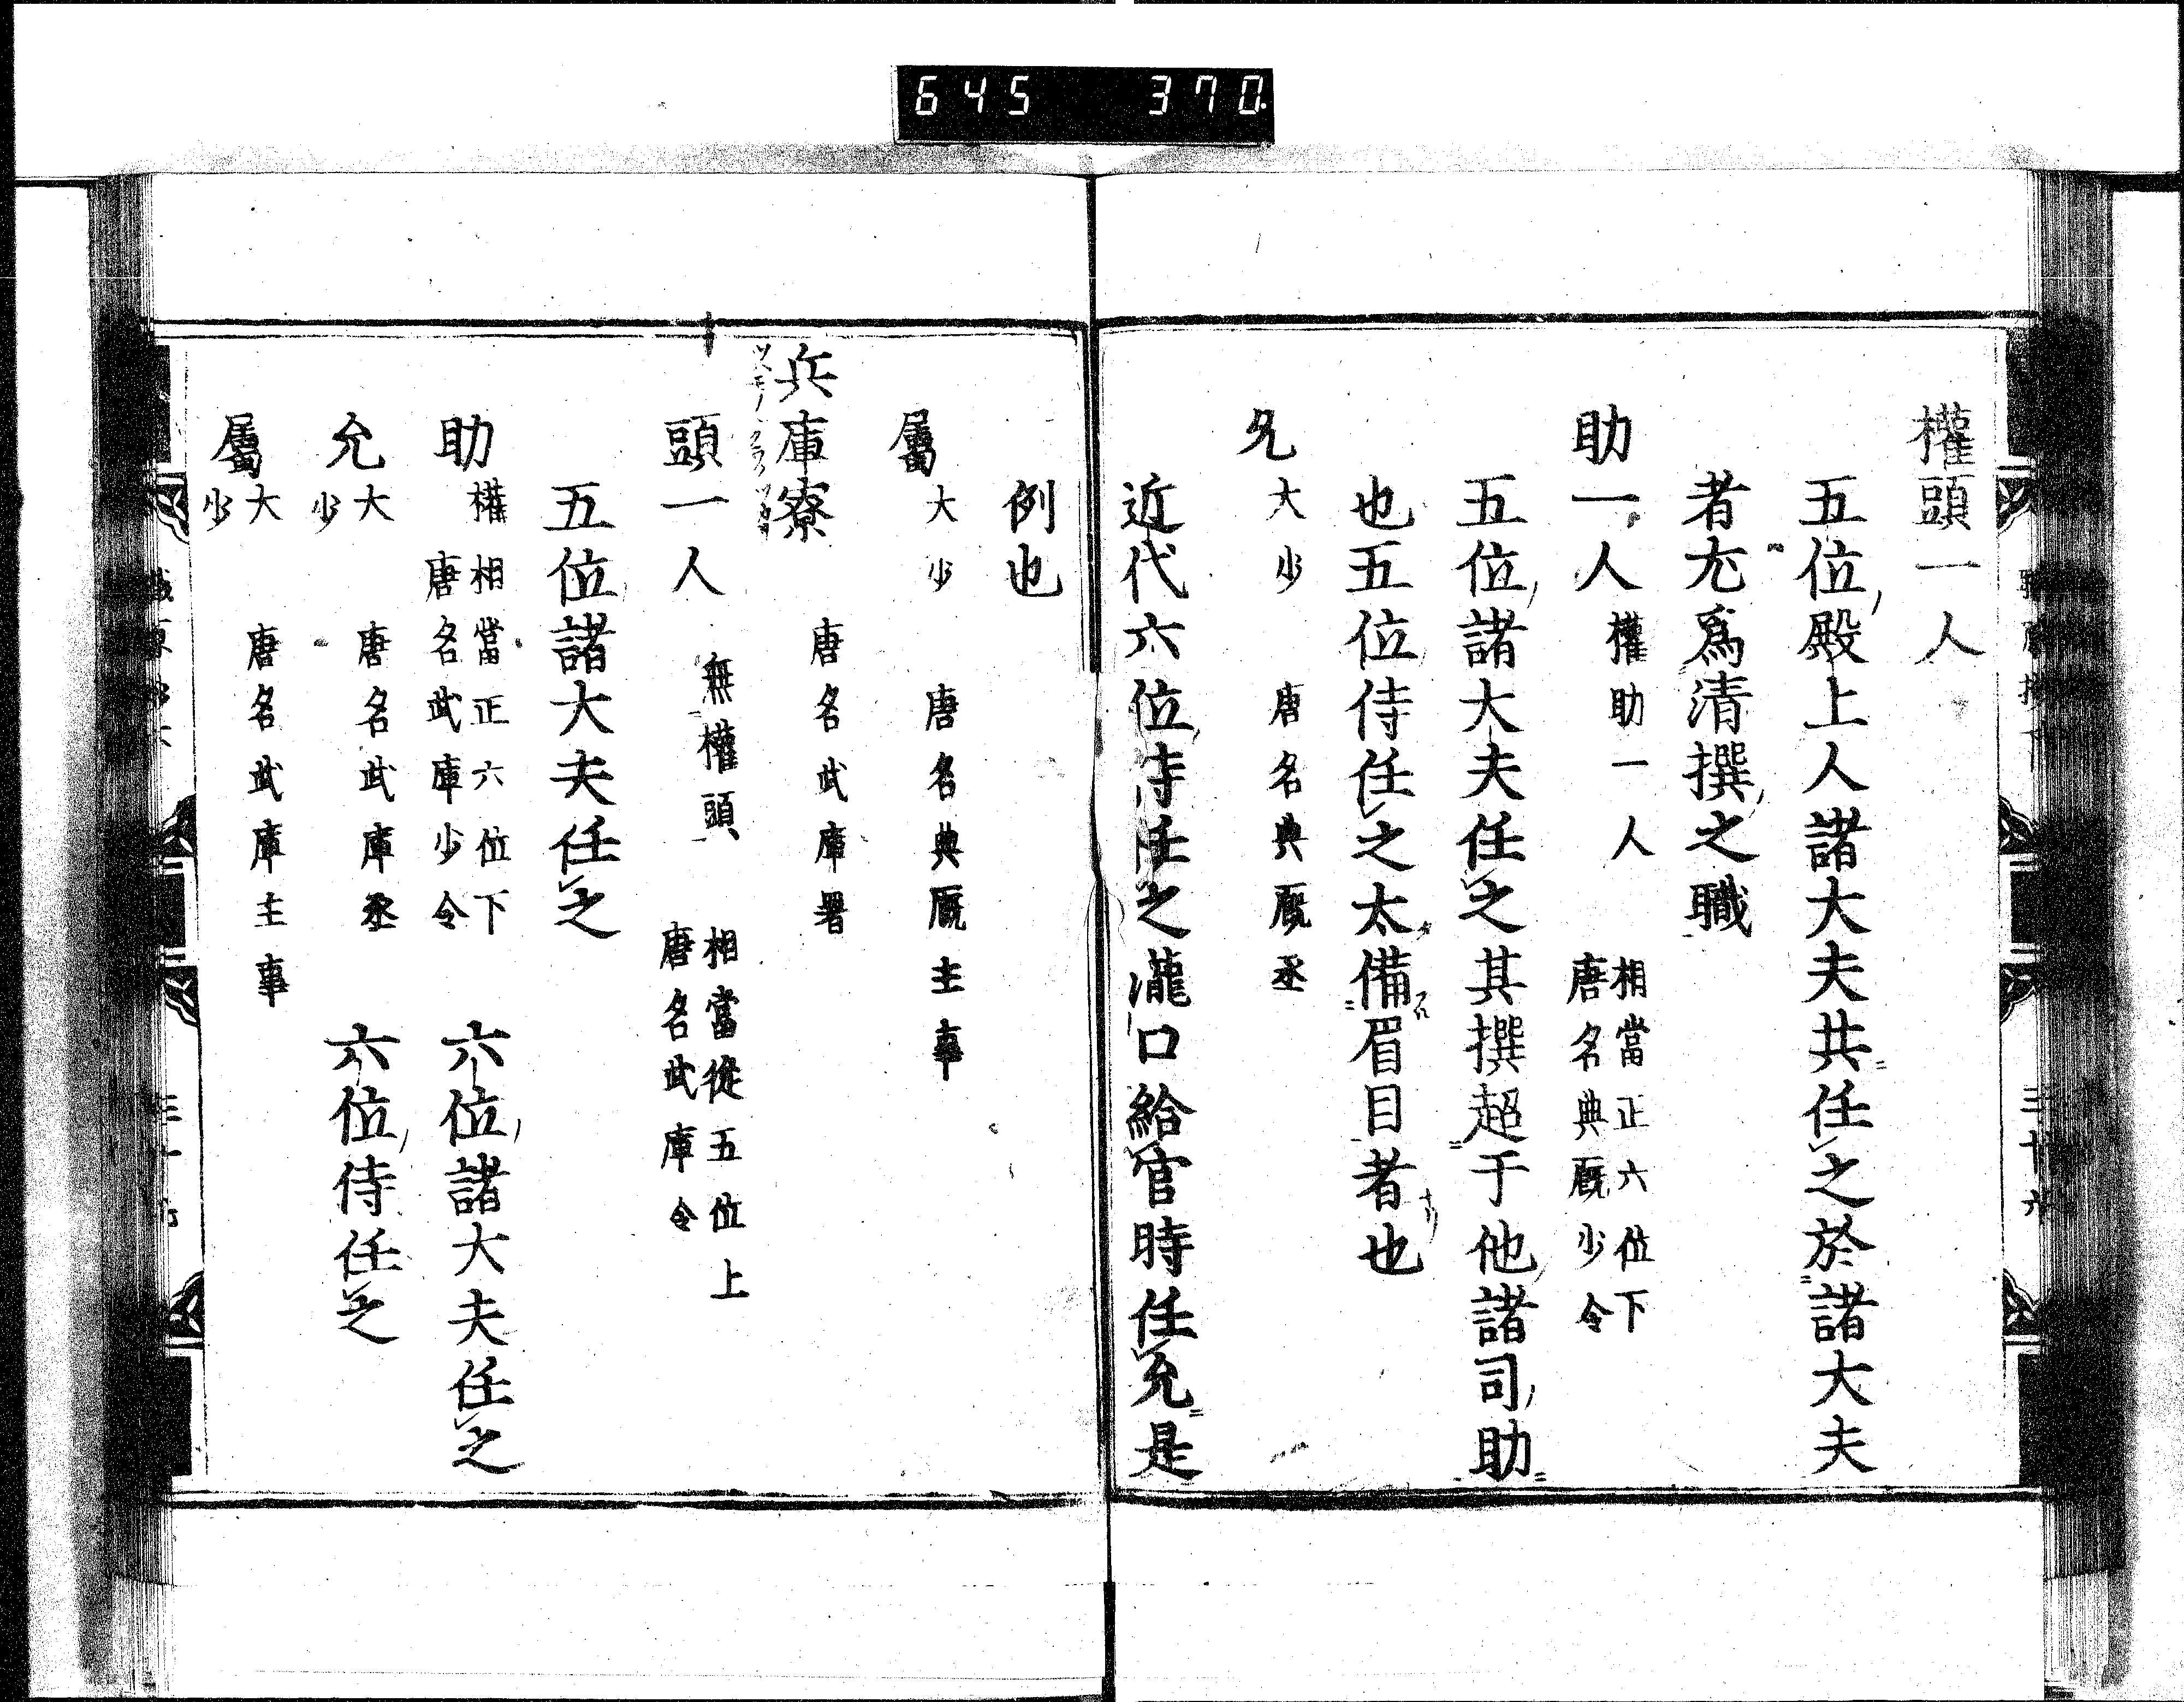 645 370
權頭一人
五位殿上人諸大夫共任之於諸大夫
者尤爲清撰之職
助一人 權助一人 相當正六位下
唐名典厩少令
五位諸大夫任之其撰超于他諸司助
也五位侍任之太備眉目者也
允 大少 唐名典厩丞
近代六位侍任之瀧口給官時任允是
例也
屬 大少 唐名典厩主事
兵庫寮 唐名武庫署
頭一人 無權頭 相當從五位上
唐名武庫令
五位諸大夫任之
助 權 相當正六位下
唐名武庫少令 六位諸大夫任之
允 大少 唐名武庫丞 六位侍任之
屬 大少 唐名武庫主事